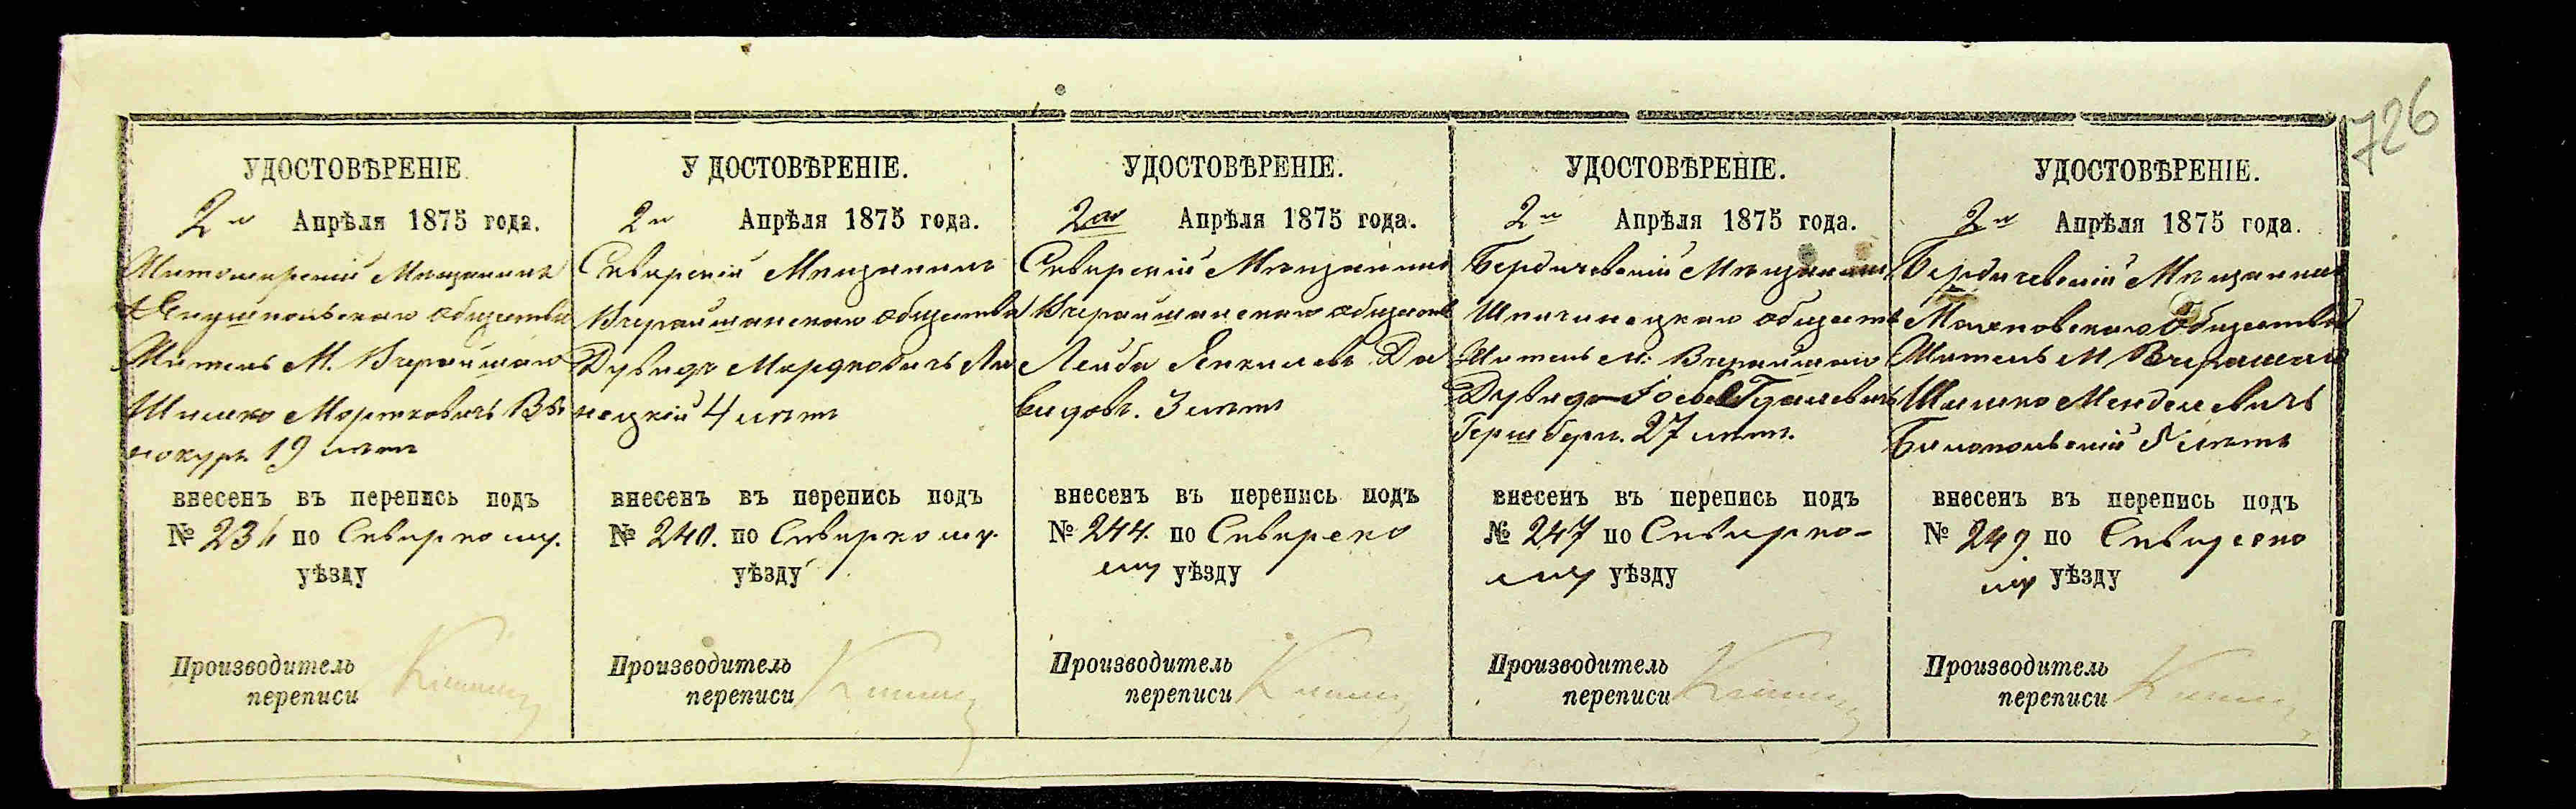 726
УДОСТОВѢРЕНІЕ.
2го Апрѣля 1875 года.
Житомирскій Мѣщанинъ
общества
Житель М. Вчерайшаго
Шмилко Мортковичъ Ви-
нокуръ 19 лѣтъ
внесенъ въ перепись подъ
№ по Сквиркому.
уѣзду
Производитель
переписи
У ДОСТОВѢРЕНІЕ.
2го Апрѣля 1875 года.
Сквирскій Мѣщанинъ
Вчерайшанскаго общества
Дувидъ Мордковичъ Ли
нецкій 4 лѣтъ
внесенъ въ перепись подъ
№ 240. по Сквиркому.
уѣзду
Производитель
переписи
УДОСТОВѢРЕНІЕ.
2го Апрѣля 1875 года.
Сквирскій Мѣщанинъ
Вчерайшанскаго общества
Лейба Янкелевъ Да
видовъ. 3 лѣтъ
внесенъ въ перепись подъ
№ 244. по Сквирско
му уѣзду
Производитель
переписи
УДОСТОВѢРЕНІЕ.
2го Апрѣля 1875 года.
Бердичевскій Мѣщанинъ
общест
Житель м: Вчерайшаго
Дувидъ-Іосъ
Гершберг. 27 лѣтъ.
внесенъ въ перепись подъ
№ 247 по Сквирко-
му уѣзду
Производитель
переписи
УДОСТОВѢРЕНІЕ.
2го Апрѣля 1875 года.
Бердичевскій Мѣщанинъ
Махновскаго Общества
Житель М Вчерайшаго
Шмилко Менделевичъ
Билопольскій 5 лѣтъ
внесенъ въ перепись подъ
№ 249 по Сквирско
му уѣзду
Производитель
переписи